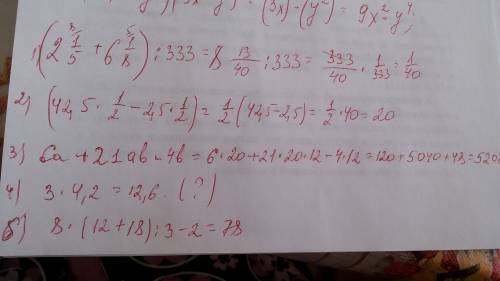 (3x) - (y²) = 9x² - y⁴;
1) (2 1/5 + 6 1/8) : 333 = 8 13/40 : 333 = 333/40 · 1/333 = 1/40
2) (42,5 · 1/2 - 2,5 · 1/2) = 1/2 (42,5 - 2,5) = 1/2 · 40 = 20
3) 6a + 21ab - 4b = 6 · 20 + 21 · 20 · 12 - 4 · 12 = 120 + 5040 + 48 = 520
4) 3 · 4,2 = 12,6. (?)
5) 8 · (12 + 18) : 3 - 2 = 78